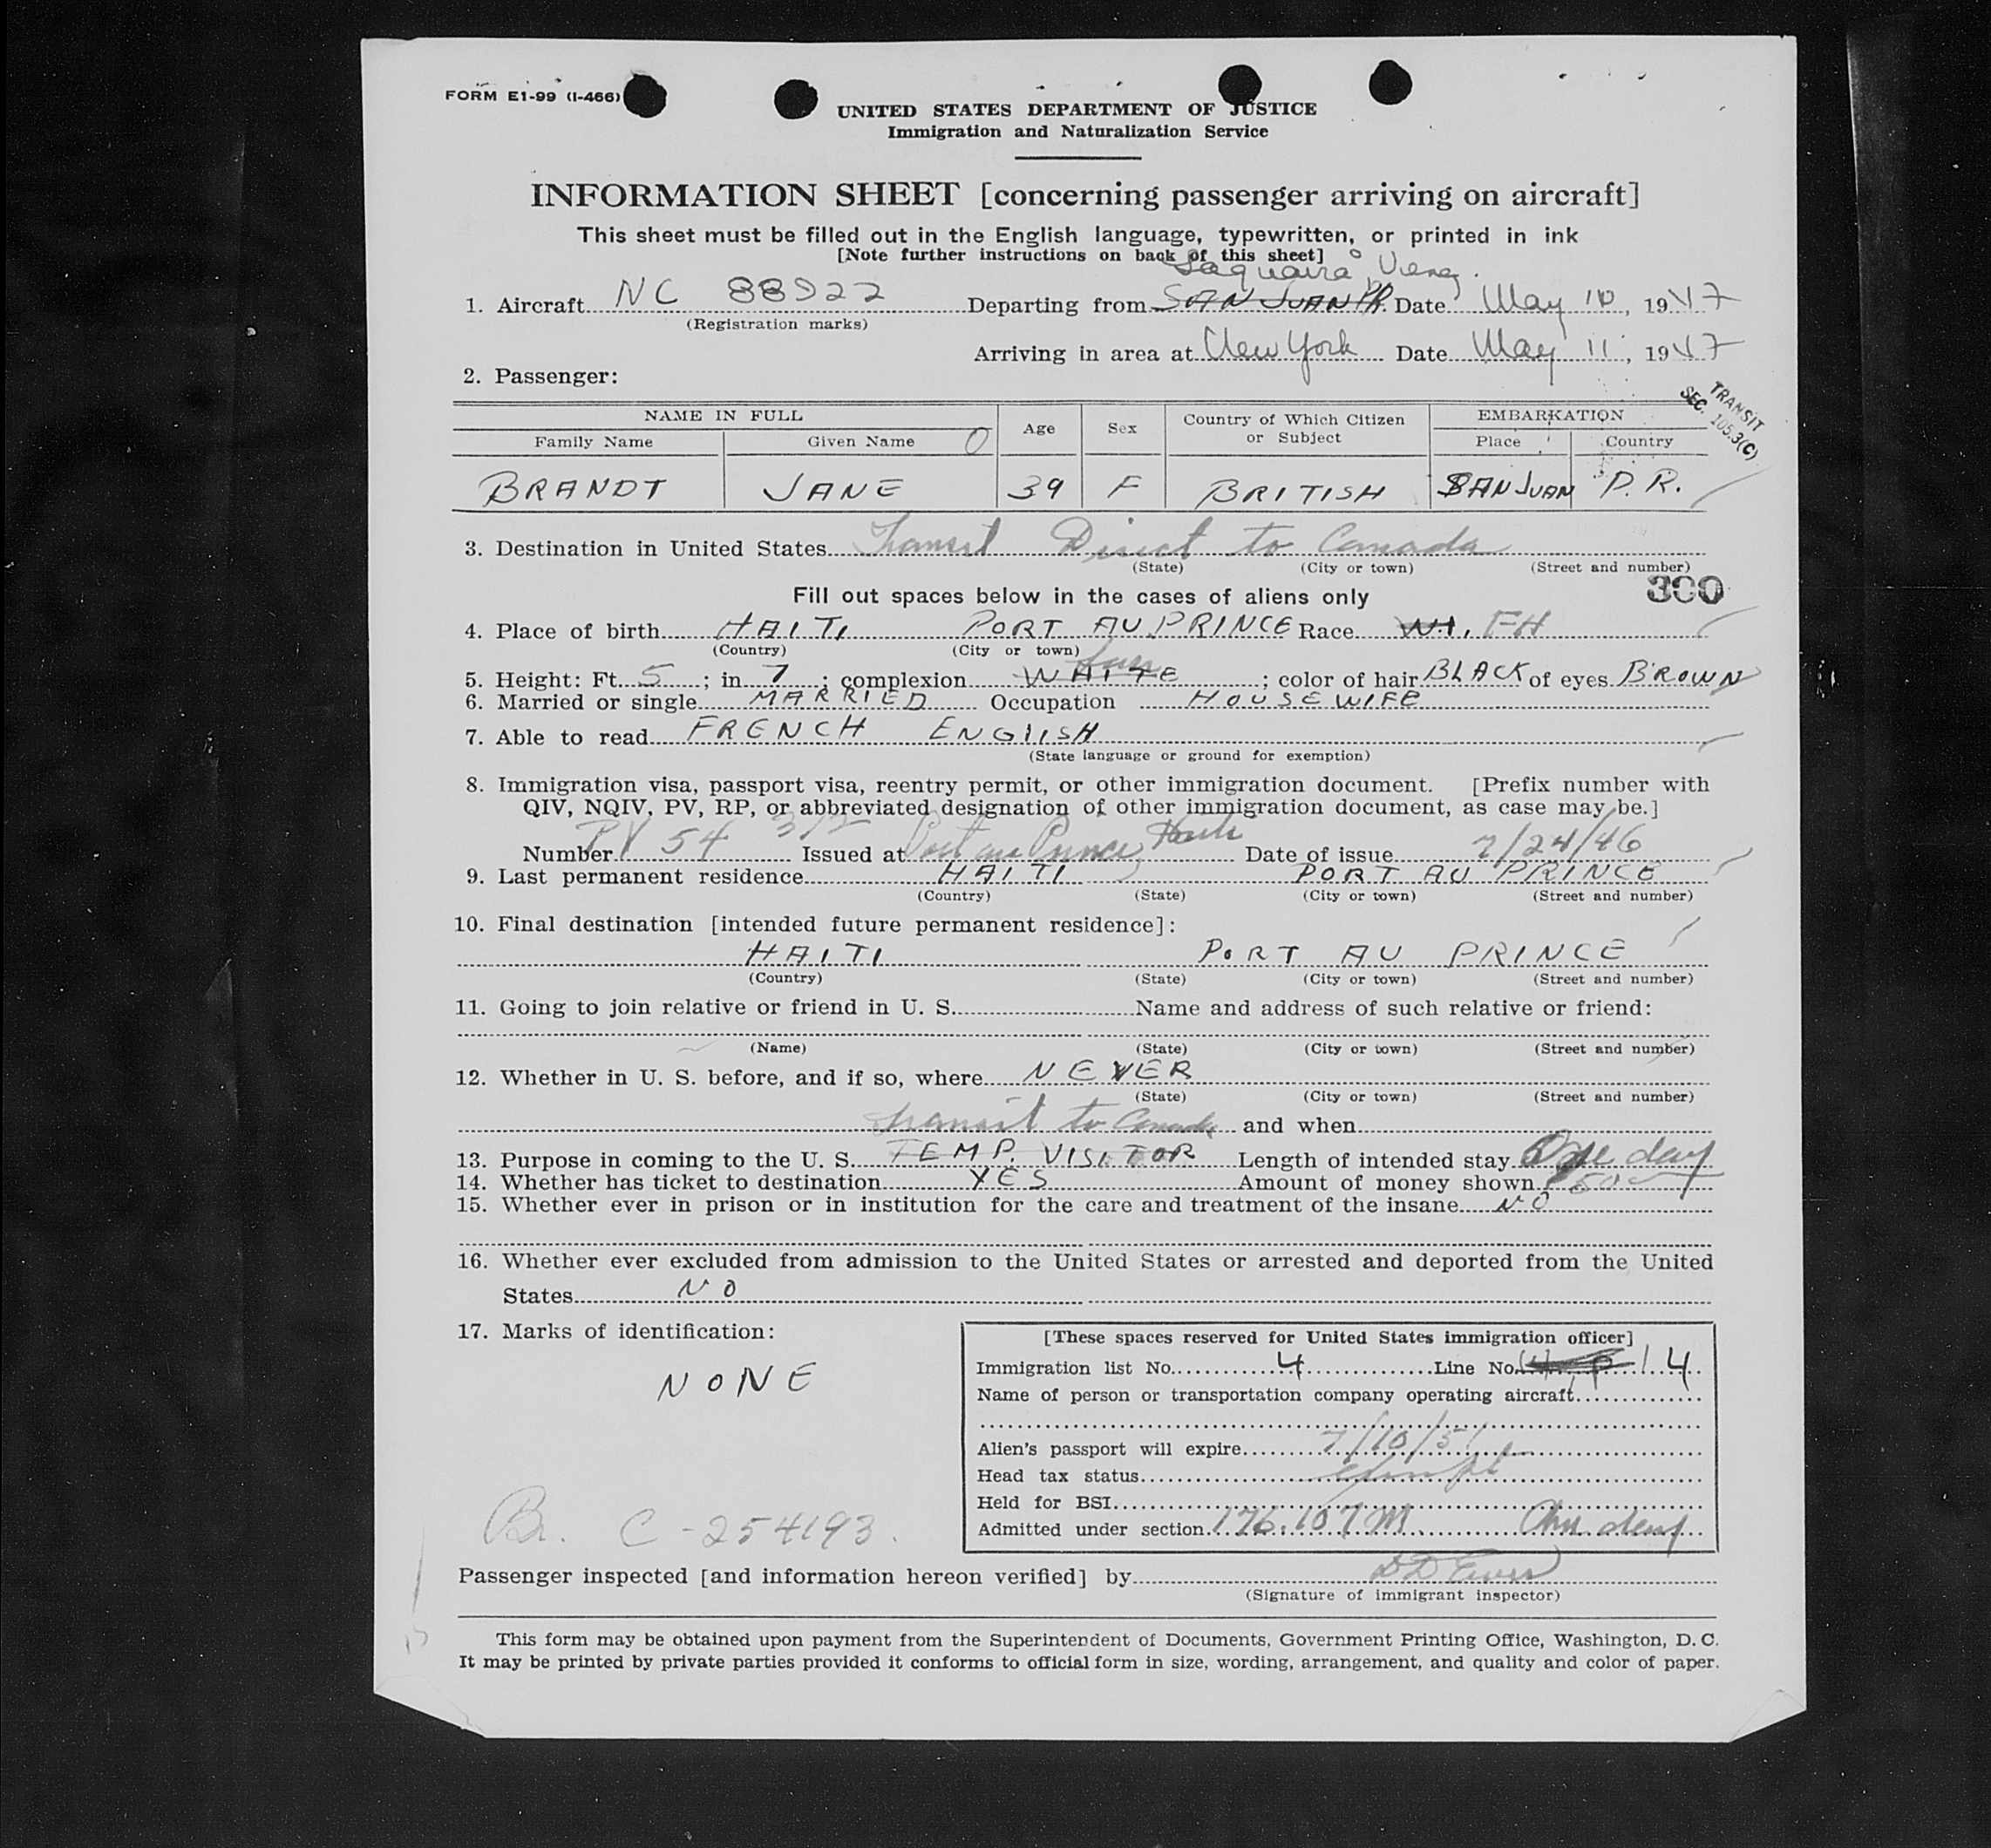 FORM E1-99 (I-466)
UNITED STATES DEPARTMENT OF JUSTICE
Immigration and Naturalization Service
INFORMATION SHEET [concerning passenger arriving on aircraft]
This sheet must be filled out in the English language, typewritten, or printed in ink
[Note further instructions on back of this sheet]
1. Aircraft NC 88922 Departing from SAN JUAN PR Date May 10, 1947
(Registration marks)
Arriving in area at New York Date May 11, 1947
2. Passenger:
TRANSIT
SEC. 105.3(C)
NAME IN FULL Age Sex Country of Which Citizen or Subject EMBARKATION
Family Name Given Name Place Country
BRANDT JANE 39 F BRITISH SAN JUAN P.R.
3. Destination in United States Transit Direct to Canada
(State) (City or town) (Street and number)
Fill out spaces below in the cases of aliens only 300
4. Place of birth HAITI PORT AU PRINCE Race W.I. FH
(Country) (City or town)
5. Height: Ft. 5; in 7; complexion WHITE; color of hair BLACK of eyes BROWN
6. Married or single MARRIED Occupation HOUSEWIFE
7. Able to read FRENCH ENGLISH
(State language or ground for exemption)
8. Immigration visa, passport visa, reentry permit, or other immigration document. [Prefix number with
QIV, NQIV, PV, RP, or abbreviated designation of other immigration document, as case may be.]
Number PV 54 312 Issued at Port au Prince, Haiti Date of issue 7/24/46
9. Last permanent residence HAITI PORT AU PRINCE
(Country) (State) (City or town) (Street and number)
10. Final destination [intended future permanent residence]:
HAITI PORT AU PRINCE
(Country) (State) (City or town) (Street and number)
11. Going to join relative or friend in U. S. Name and address of such relative or friend:
(Name) (State) (City or town) (Street and number)
12. Whether in U. S. before, and if so, where NEVER
(State) (City or town) (Street and number)
transit to Canada and when
13. Purpose in coming to the U. S. TEMP. VISITOR Length of intended stay One day
14. Whether has ticket to destination YES Amount of money shown 50
15. Whether ever in prison or in institution for the care and treatment of the insane NO
16. Whether ever excluded from admission to the United States or arrested and deported from the United
States NO
17. Marks of identification:
NONE
[These spaces reserved for United States immigration officer]
Immigration list No. 4 Line No. 14
Name of person or transportation company operating aircraft
Alien's passport will expire 7/10/51
Head tax status exempt
Held for BSI
Admitted under section 176.107 M One day
Br. C-254193.
Passenger inspected [and information hereon verified] by
(Signature of immigrant inspector)
This form may be obtained upon payment from the Superintendent of Documents, Government Printing Office, Washington, D. C.
It may be printed by private parties provided it conforms to official form in size, wording, arrangement, and quality and color of paper.